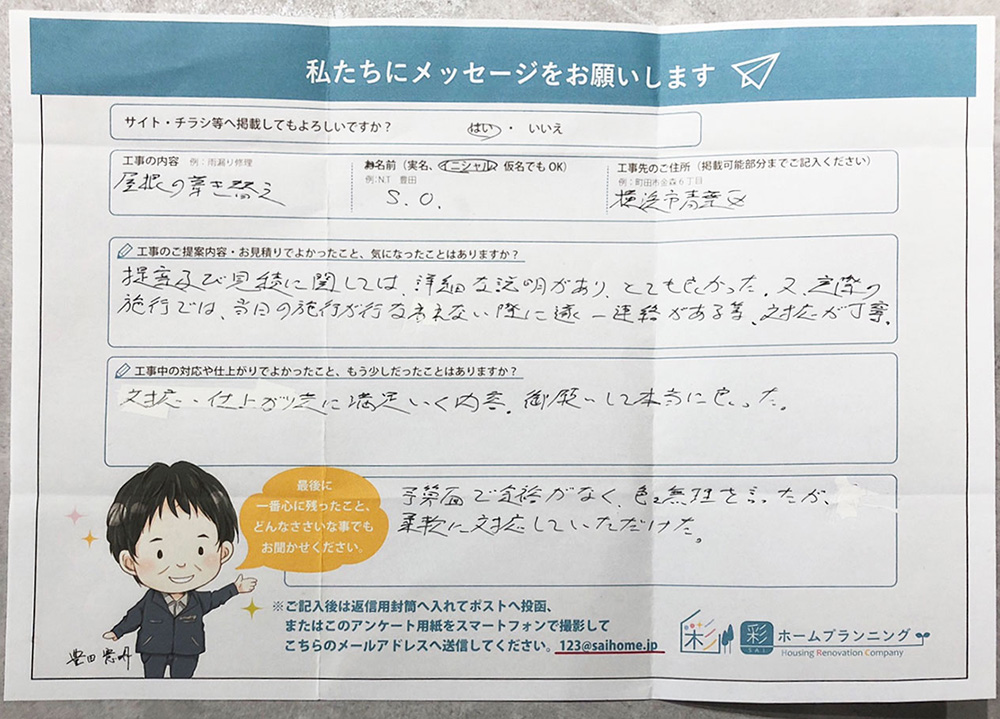 私たちにメッセージをお願いします
サイト・チラシ等へ掲載してもよろしいですか？ はい ・ いいえ
工事の内容 例：雨漏り修理
屋根の葺き替え
お名前（実名、イニシャル、仮名でもOK）
例：N.T 豊田
S.O.
工事先のご住所（掲載可能部分までご記入ください）
例：町田市金森６丁目
横浜市青葉区
工事のご提案内容・お見積りでよかったこと、気になったことはありますか？
提案及び見積に関しては、詳細な説明があり、とても良かった。又、実際の
施行では、当日の施行が行なえない際に逐一連絡がある等、対応が丁寧。
工事中の対応や仕上がりでよかったこと、もう少しだったことはありますか？
対応・仕上がり共に満足いく内容。御願いして本当に良かった。
最後に
一番心に残ったこと、
どんなささいな事でも
お聞かせください。
予算面で余裕がなく、色々無理を言ったが、
柔軟に対応していただけた。
※ご記入後は返信用封筒へ入れてポストへ投函、
またはこのアンケート用紙をスマートフォンで撮影して
こちらのメールアドレスへ送信してください。123@saihome.jp
彩 SAI ホームプランニング
Housing Renovation Company
豊田